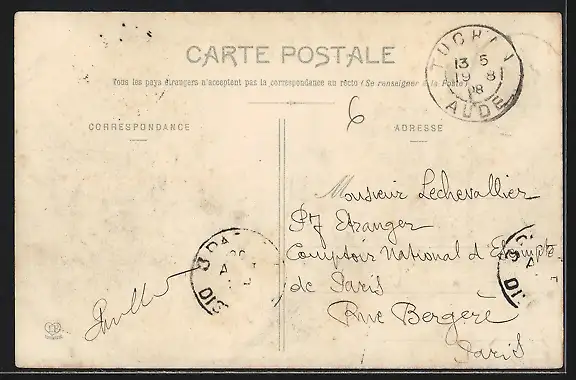 CARTE POSTALE
Tous les pays étrangers n'acceptent pas la correspondance au recto (Se renseigner à la Poste)
CORRESPONDANCE
ADRESSE
TUCHAN
13 5
19 8
08
AUDE
6
Monsieur Lechevallier
Etranger
Comptoir National d'Escompte
de Paris
Rue Bergère
Paris